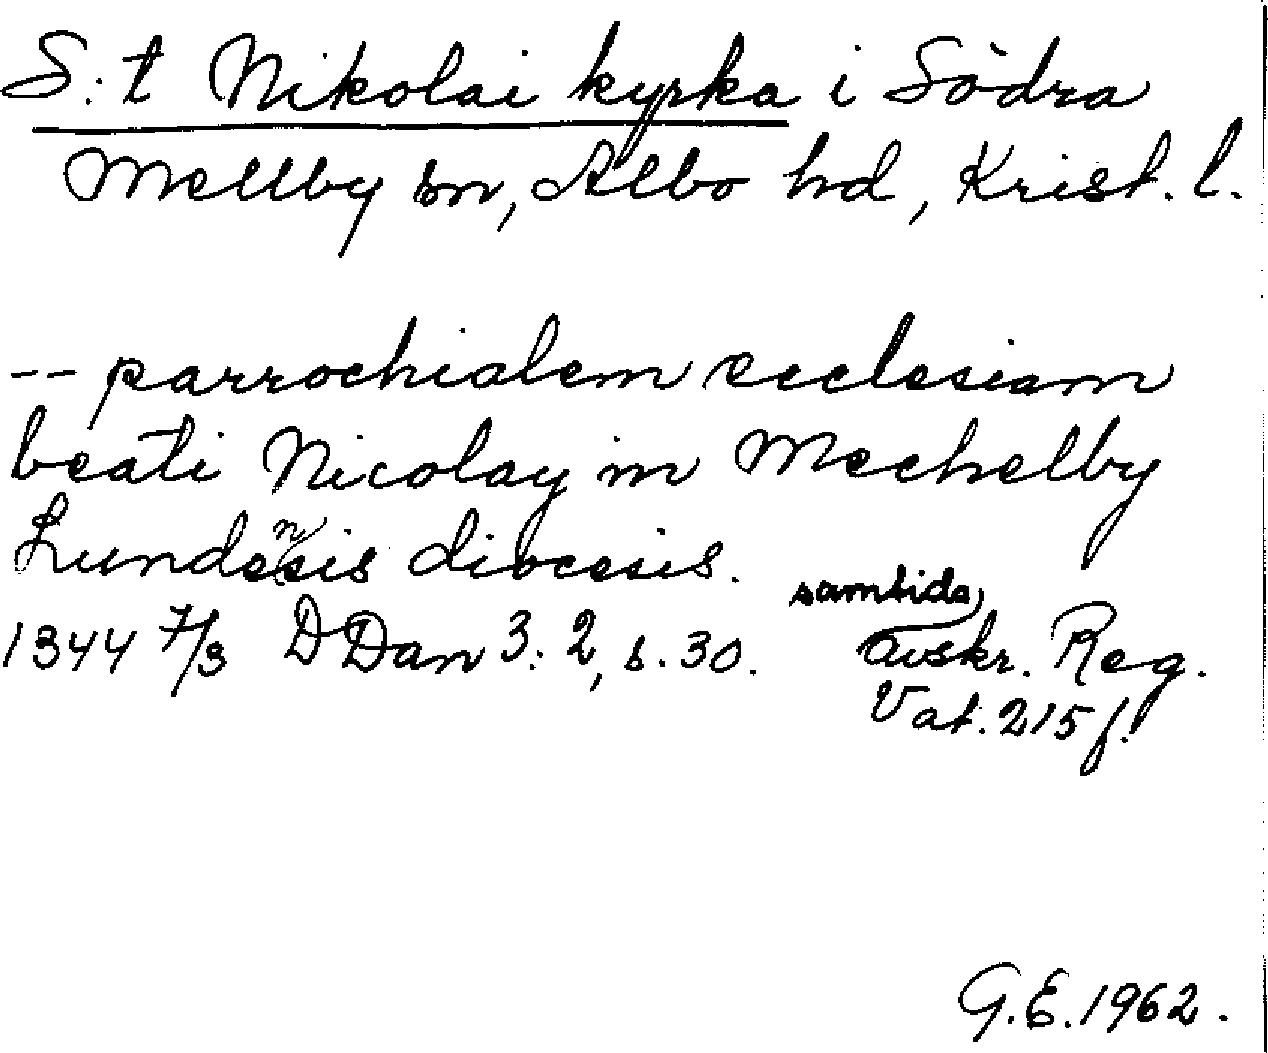 S:t Nikolai kyrka i Södra
Mellby sn, Albo hd, Krist. l.
-- parrochialem ecclesiam
beati Nicolay in Mechelby
Lundensis diocesis.
samtida
1344 7/3 DDan 3:2, s. 30. avskr. Reg.
Vat. 215 f.
G.E. 1962.